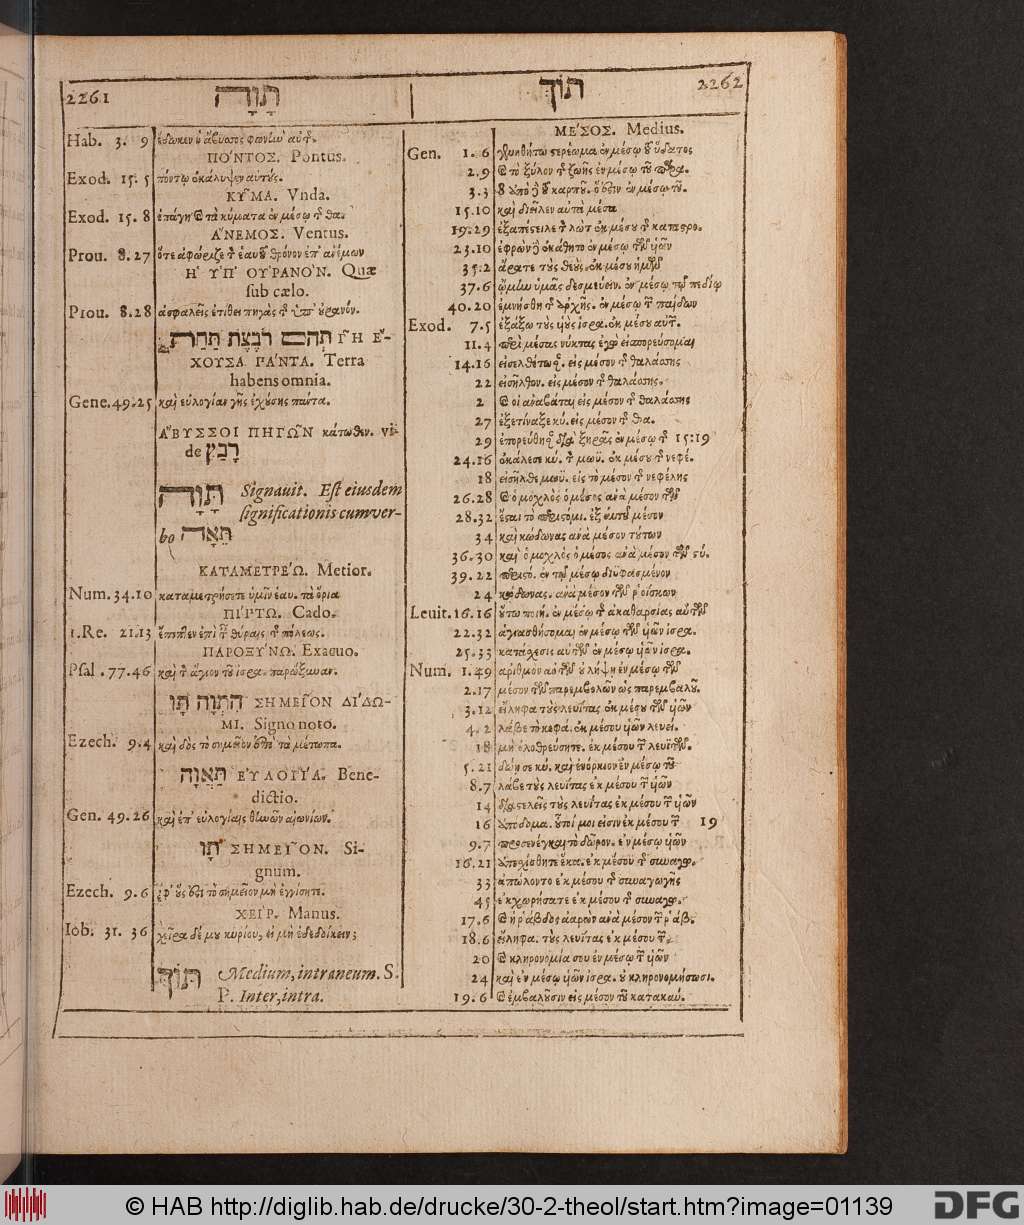 2261 תָּוָה
Hab. 3. 9 ἔδωκεν ἡ ἄβυσσος φωνὴν αὐτ.
ΠΟ'ΝΤΟΣ. Pontus.
Exod. 15. 5 πόντῳ ἐκάλυψεν αὐτούς.
ΚΥ͂ΜΑ. Vnda.
Exod. 15. 8 ἐπάγη τὰ κύματα ἐν μέσῳ τ θα.
Α'ΝΕΜΟΣ. Ventus.
Prou. 8. 27 ὅτε ἀφώριζε τ ἑαυ θρόνον ἐπ' ἀνέμων
Η' ΥΠ' ΟΥΡΑΝΟ'Ν. Quæ
sub cælo.
Prou. 8.28 ἀσφαλεῖς ἐτίθει πηγὰς τ ὑπ' οὐρανόν.
תְּהוֹם רֹבֶצֶת תַּחַת ΓῆΗ Ε"-
ΧΟΥΣΑ ΠΑ'ΝΤΑ. Terra
habens omnia.
Gene.49.25 καὶ εὐλογίαν γῆς ἐχούσης πάντα.
Α"ΒΥΣΣΟΙ ΠΗΓΩ͂Ν κάτωθεν. vi-
de רָבַץ
תָּוָה Signauit. Est eiusdem
significationis cum ver-
bo תָּאָה
ΚΑΤΑΜΕΤΡΕ'Ω. Metior.
Num. 34.10 καταμετρήσετε ὑμῖν ἑαυ. τὰ ὅρια
ΠΙ'ΠΤΩ. Cado.
1.Re. 21.13 ἔπιπτεν ἐπὶ τ θύρας τ πόλεως.
ΠΑΡΟΞΥ'ΝΩ. Exacuo.
Psal. 77.46 καὶ τ ἅγιον τοῦ ἰσρα. παρώξυναν.
הִתְוָה תָּו ΣΗΜΕΙ͂ΟΝ ΔΙ'ΔΩ-
ΜΙ. Signo noto.
Ezech. 9.4 καὶ δὸς τὸ σημεῖον ἐπὶ τὰ μέτωπα.
תַּאֲוָה ΕΥ'ΛΟΓΙ'Α. Bene-
dictio.
Gen. 49.26 καὶ ἐπ' εὐλογίαις θινῶν αἰωνίων.
תָּו ΣΗΜΕΙ͂ΟΝ. Si-
gnum.
Ezech. 9.6 ἐφ' οὓς ἐστι τὸ σημεῖον μὴ ἐγγίσητε.
ΧΕΙ'Ρ. Manus.
Iob. 31. 36 χεῖρα δέ μου κυρίου, εἰ μὴ ἐδεδοίκειν;
תּוֹךְ Medium, intraneum. S.
P. Inter, intra.
תּוֹךְ 2262
ΜΕ'ΣΟΣ. Medius.
Gen. 1. 6 γενηθήτω στερέωμα ἐν μέσῳ τοῦ ὕδατος
2.9 τὸ ξύλον τ ζωῆς ἐν μέσῳ τοῦ παρα.
3.3 ἀπὸ καρποῦ. ὅ ἐστιν ἐν μέσῳ τοῦ.
15.10 καὶ διεῖλεν αὐτὰ μέσα
19.29 ἐξαπέστειλε τ λὼτ ἐκ μέσου τ καταστρο.
23.10 ἐφρὼν ἐκάθητο ἐν μέσῳ τῶν υἱῶν
35.2 ἄρατε τοὺς θεούς. ἐκ μέσου ἡμῶν
37.6 ᾤμην ὑμᾶς δεσμεύειν. ἐν μέσῳ τῷ πεδίῳ
40.20 ἐμνήσθη τ ἀρχῆς. ἐν μέσῳ τ παίδων
Exod. 7.5 ἐξάξω τοὺς υἱοὺς ἰσρα. ἐκ μέσου αὐτ.
11.4 περὶ μέσας νύκτας ἐγὼ εἰσπορεύσομαι
14.16 εἰσελθέτω. εἰς μέσον τ θαλάσσης
22 εἰσῆλθον. εἰς μέσον τ θαλάσσης.
2 οἱ ἀναβάται εἰς μέσον τ θαλάσσης
27 ἐξετίναξε κύ. εἰς μέσον τ θα.
29 ἐπορεύθη διὰ ξηρᾶς ἐν μέσῳ τ 15:19
24.16 ἐκάλεσε κύ. τ μωϋ. ἐκ μέσου τ νεφέ.
18 εἰσῆλθε μωϋ. εἰς τὸ μέσον τ νεφέλης
26.28 ὁ μοχλὸς ὁ μέσος ἀνὰ μέσον τῶν
28.32 ἔσται τὸ περιστόμι. ἐξ αὐτοῦ μέσον
34 καὶ κώδωνας ἀνὰ μέσον τούτων
36.30 καὶ ὁ μοχλὸς ὁ μέσος ἀνὰ μέσον τῶν στύ.
39.22 περιστό. ἐν τῷ μέσῳ διϋφασμένον
24 κώδωνας. ἀνὰ μέσον τῶν ῥοΐσκων
Leuit.16.16 οὕτω ποιή. ἐν μέσῳ τ ἀκαθαρσίας αὐτῶν
22.32 ἁγιασθήσομαι ἐν μέσῳ τῶν υἱῶν ἰσρα.
25.33 κατάχεσις αὐτῶν ἐν μέσῳ υἱῶν ἰσρα.
Num. 1.49 ἀριθμὸν αὐτῶν οὐ λήψῃ ἐν μέσῳ τῶν
2.17 μέσον τῶν παρεμβολῶν ὡς παρεμβαλοῦ.
3.12 εἴληφα τοὺς λευίτας ἐκ μέσου τῶν υἱῶν
4.2 λάβε τὸ κεφά. ἐκ μέσου υἱῶν λευεί.
18 μὴ ὀλοθρεύσητε. ἐκ μέσου τ λευιτῶν.
5.21 δῴη σε κύ. καὶ ἐνόρκιον ἐν μέσῳ τοῦ
8.7 λάβε τοὺς λευίτας ἐκ μέσου τ υἱῶν
14 διαστελεῖς τοὺς λευίτας ἐκ μέσου τ υἱῶν
16 ἀποδομα. οὗτοί μοι εἰσιν ἐκ μέσου τ 19
9.7 προσενέγκαι τὸ δῶρον. ἐν μέσῳ υἱῶν
16.21 ἀποσχίσθητε ἐκ μέσου τ συναγω.
33 ἀπώλοντο ἐκ μέσου τ συναγωγῆς
45 ἐκχωρήσατε ἐκ μέσου τ συναγω.
17.6 ἡ ῥάβδος ἀαρὼν ἀνὰ μέσον τ ῥάβ.
18.6 εἴληφα. τοὺς λευίτας ἐκ μέσου τ.
20 κληρονομία σου ἐν μέσῳ τ υἱῶν
24 καὶ ἐν μέσῳ υἱῶν ἰσρα. οὐ κληρονομήσουσι.
19.6 ἐμβαλοῦσιν εἰς μέσον τοῦ κατακαύ.
© HAB http://diglib.hab.de/drucke/30-2-theol/start.htm?image=01139 DFG